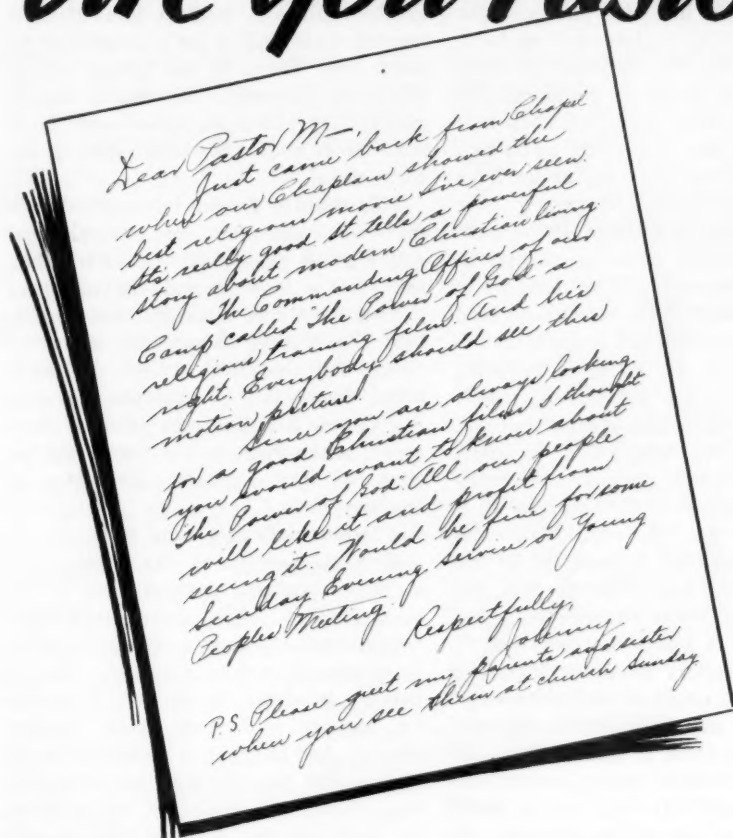 Are You Pasto
Dear Pastor M—,
Just came back from Chapel
when our Chaplain showed the
best religious movie I've ever seen.
It's really good. It tells a powerful
story about modern Christian living.
The Commanding Officer of our
Camp called "The Power of God" a
religious training film. And he's
right. Everybody should see this
motion picture!
Since you are always looking
for a good Christian film I thought
you would want to know about
"The Power of God". All our people
will like it and profit from
seeing it. Would be fine for some
Sunday Evening Service or Young
Peoples Meeting.
Respectfully,
Johnny
P.S. Please greet my parents and sister
when you see them at church Sunday